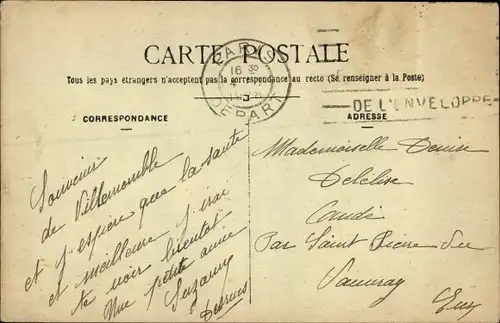 CARTE POSTALE
PARIS
16 30
DEPART
Tous les pays étrangers n'acceptent pas la correspondance au recto (Se renseigner à la Poste)
DE L'ENVELOPPE
CORRESPONDANCE
ADRESSE
Souvenir
de Villemomble
et j'espère que la santé
et meilleure j'irai
te voir bientot
Une petite amie
Suzanne
Mademoiselle Denise
Delélise
Condé
Par Saint Pierre du
Vauvray
Eure